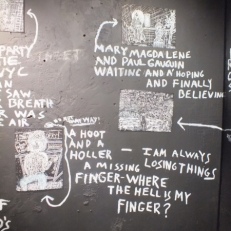 PARTY
THE
NYC
AN
SAW
BREATH
WAS
AIR
MARY MAGDALENE
AND PAUL GAUGUIN
WAITING AND A' HOPING
AND FINALLY
BELIEVING
A HOOT
AND A
HOLLER —
A MISSING
FINGER-WHERE
THE HELL IS MY
FINGER?
I AM ALWAYS
LOSING THINGS
OF